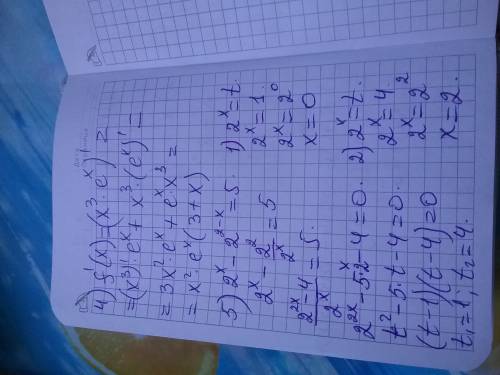 4) f'(x) = (x³·eˣ)' =
= (x³)'·eˣ + x³·(eˣ)' =
= 3x²·eˣ + eˣ·x³ =
= x²·eˣ(3+x)
5) 2ˣ - 2²⁻ˣ = 5.
2ˣ - 2²/2ˣ = 5
(2²ˣ - 4)/2ˣ = 5.
2²ˣ - 5·2ˣ - 4 = 0.
t² - 5·t - 4 = 0.
(t-1)(t-4) = 0
t₁ = 1; t₂ = 4.
1) 2ˣ = t.
2ˣ = 1.
2ˣ = 2⁰
x = 0
2) 2ˣ = t.
2ˣ = 4
2ˣ = 2²
x = 2.